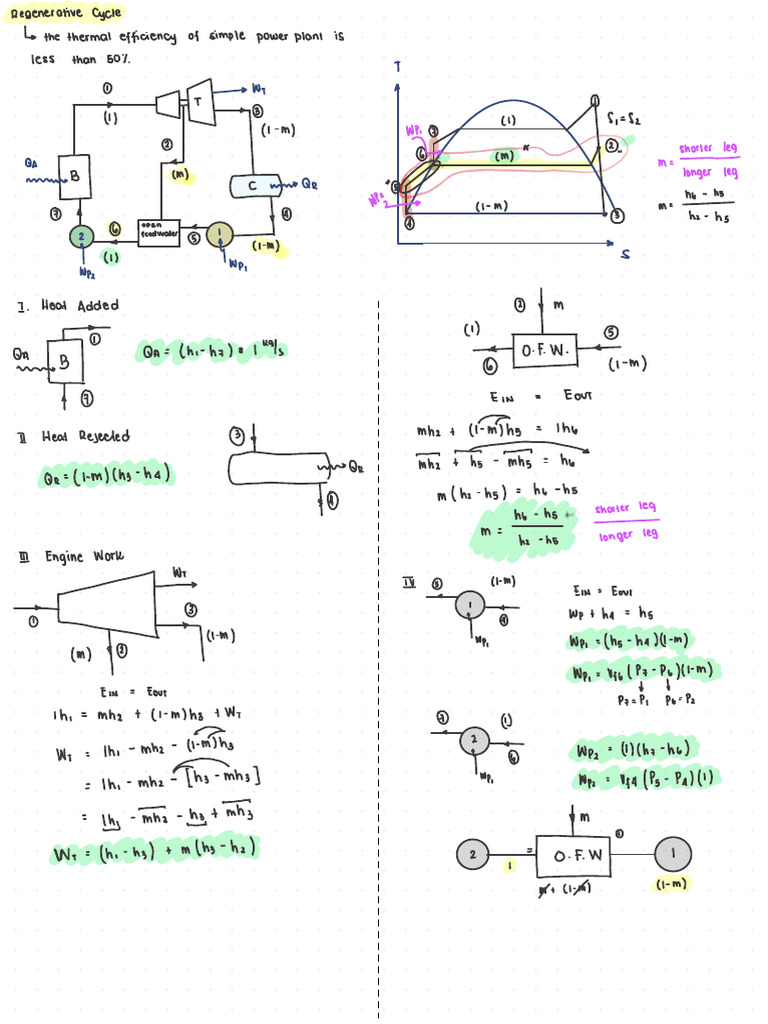 Regenerative Cycle
↳ the thermal efficiency of simple power plant is
less than 50%.
①
(1)
T
WT
③
(1-m)
②
(m)
QA
B
C
QR
④
⑦
2
⑥
(1)
WP2
open feedwater
⑤
1
(1-m)
WP1
T
①
S1=S2
(1)
WP1
⑦
⑥
(m)
②
WP2
⑤
④
(1-m)
③
S
m = shorter leg / longer leg
m = h6 - h5 / h2 - h5
I. Heat Added
QA
B
①
⑦
QA = (h1-h7) * 1 kg/s
II Heat Rejected
QR = (1-m)(h3-h4)
③
QR
④
III Engine Work
WT
①
③
(1-m)
(m)
②
EIN = EOUT
1h1 = mh2 + (1-m)h3 + WT
WT = 1h1 - mh2 - (1-m)h3
= 1h1 - mh2 - [h3 - mh3]
= 1h1 - mh2 - h3 + mh3
WT = (h1-h3) + m(h3-h2)
②
m
(1)
O.F.W.
⑤
⑥
(1-m)
EIN = EOUT
mh2 + (1-m)h5 = 1h6
mh2 + h5 - mh5 = h6
m(h2-h5) = h6-h5
m = h6 - h5 / h2 - h5
shorter leg / longer leg
IV
⑤
(1-m)
1
④
WP1
EIN = EOUT
WP + h4 = h5
WP1 = (h5-h4)(1-m)
WP1 = Vf6(P7-P6)(1-m)
P7=P1 P6=P2
⑦
(1)
2
⑥
WP1
WP2 = (1)(h7-h6)
WP2 = Vf4(P5-P4)(1)
m
2
=
1
O.F.W
1
m + (1-m)
(1-m)